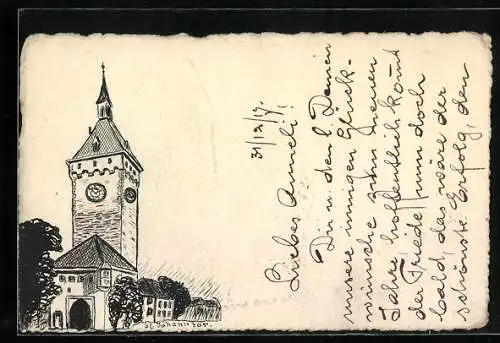 31/12/17.
Liebes Anneli!
Dir u. den l. Deinen
unsere innigen Glück-
wünsche zum neuen
Jahre. Hoffentlich kommt
der Friede nun doch
bald, das wäre der
schönste Erfolg, den
St. Johanntor.